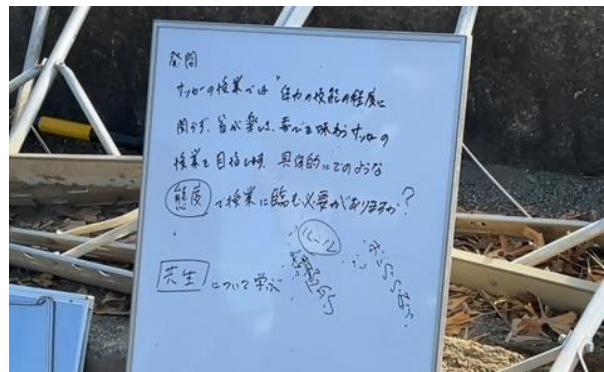 発問
サッカーの授業では"体力や技能の程度に
関らず、皆が楽しさ、喜びを味わうサッカーの
授業を目指し時、具体的にどのような
態度で授業に臨む必要がありますか?
共生について学ぶ
ルール